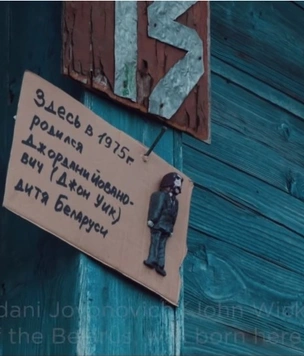 13
Здесь в 1975г
родился
Джордани Йовано-
вич (Джон Уик)
дитя Беларуси
dani Jovonovich (John Wick
the Belarus, was born here